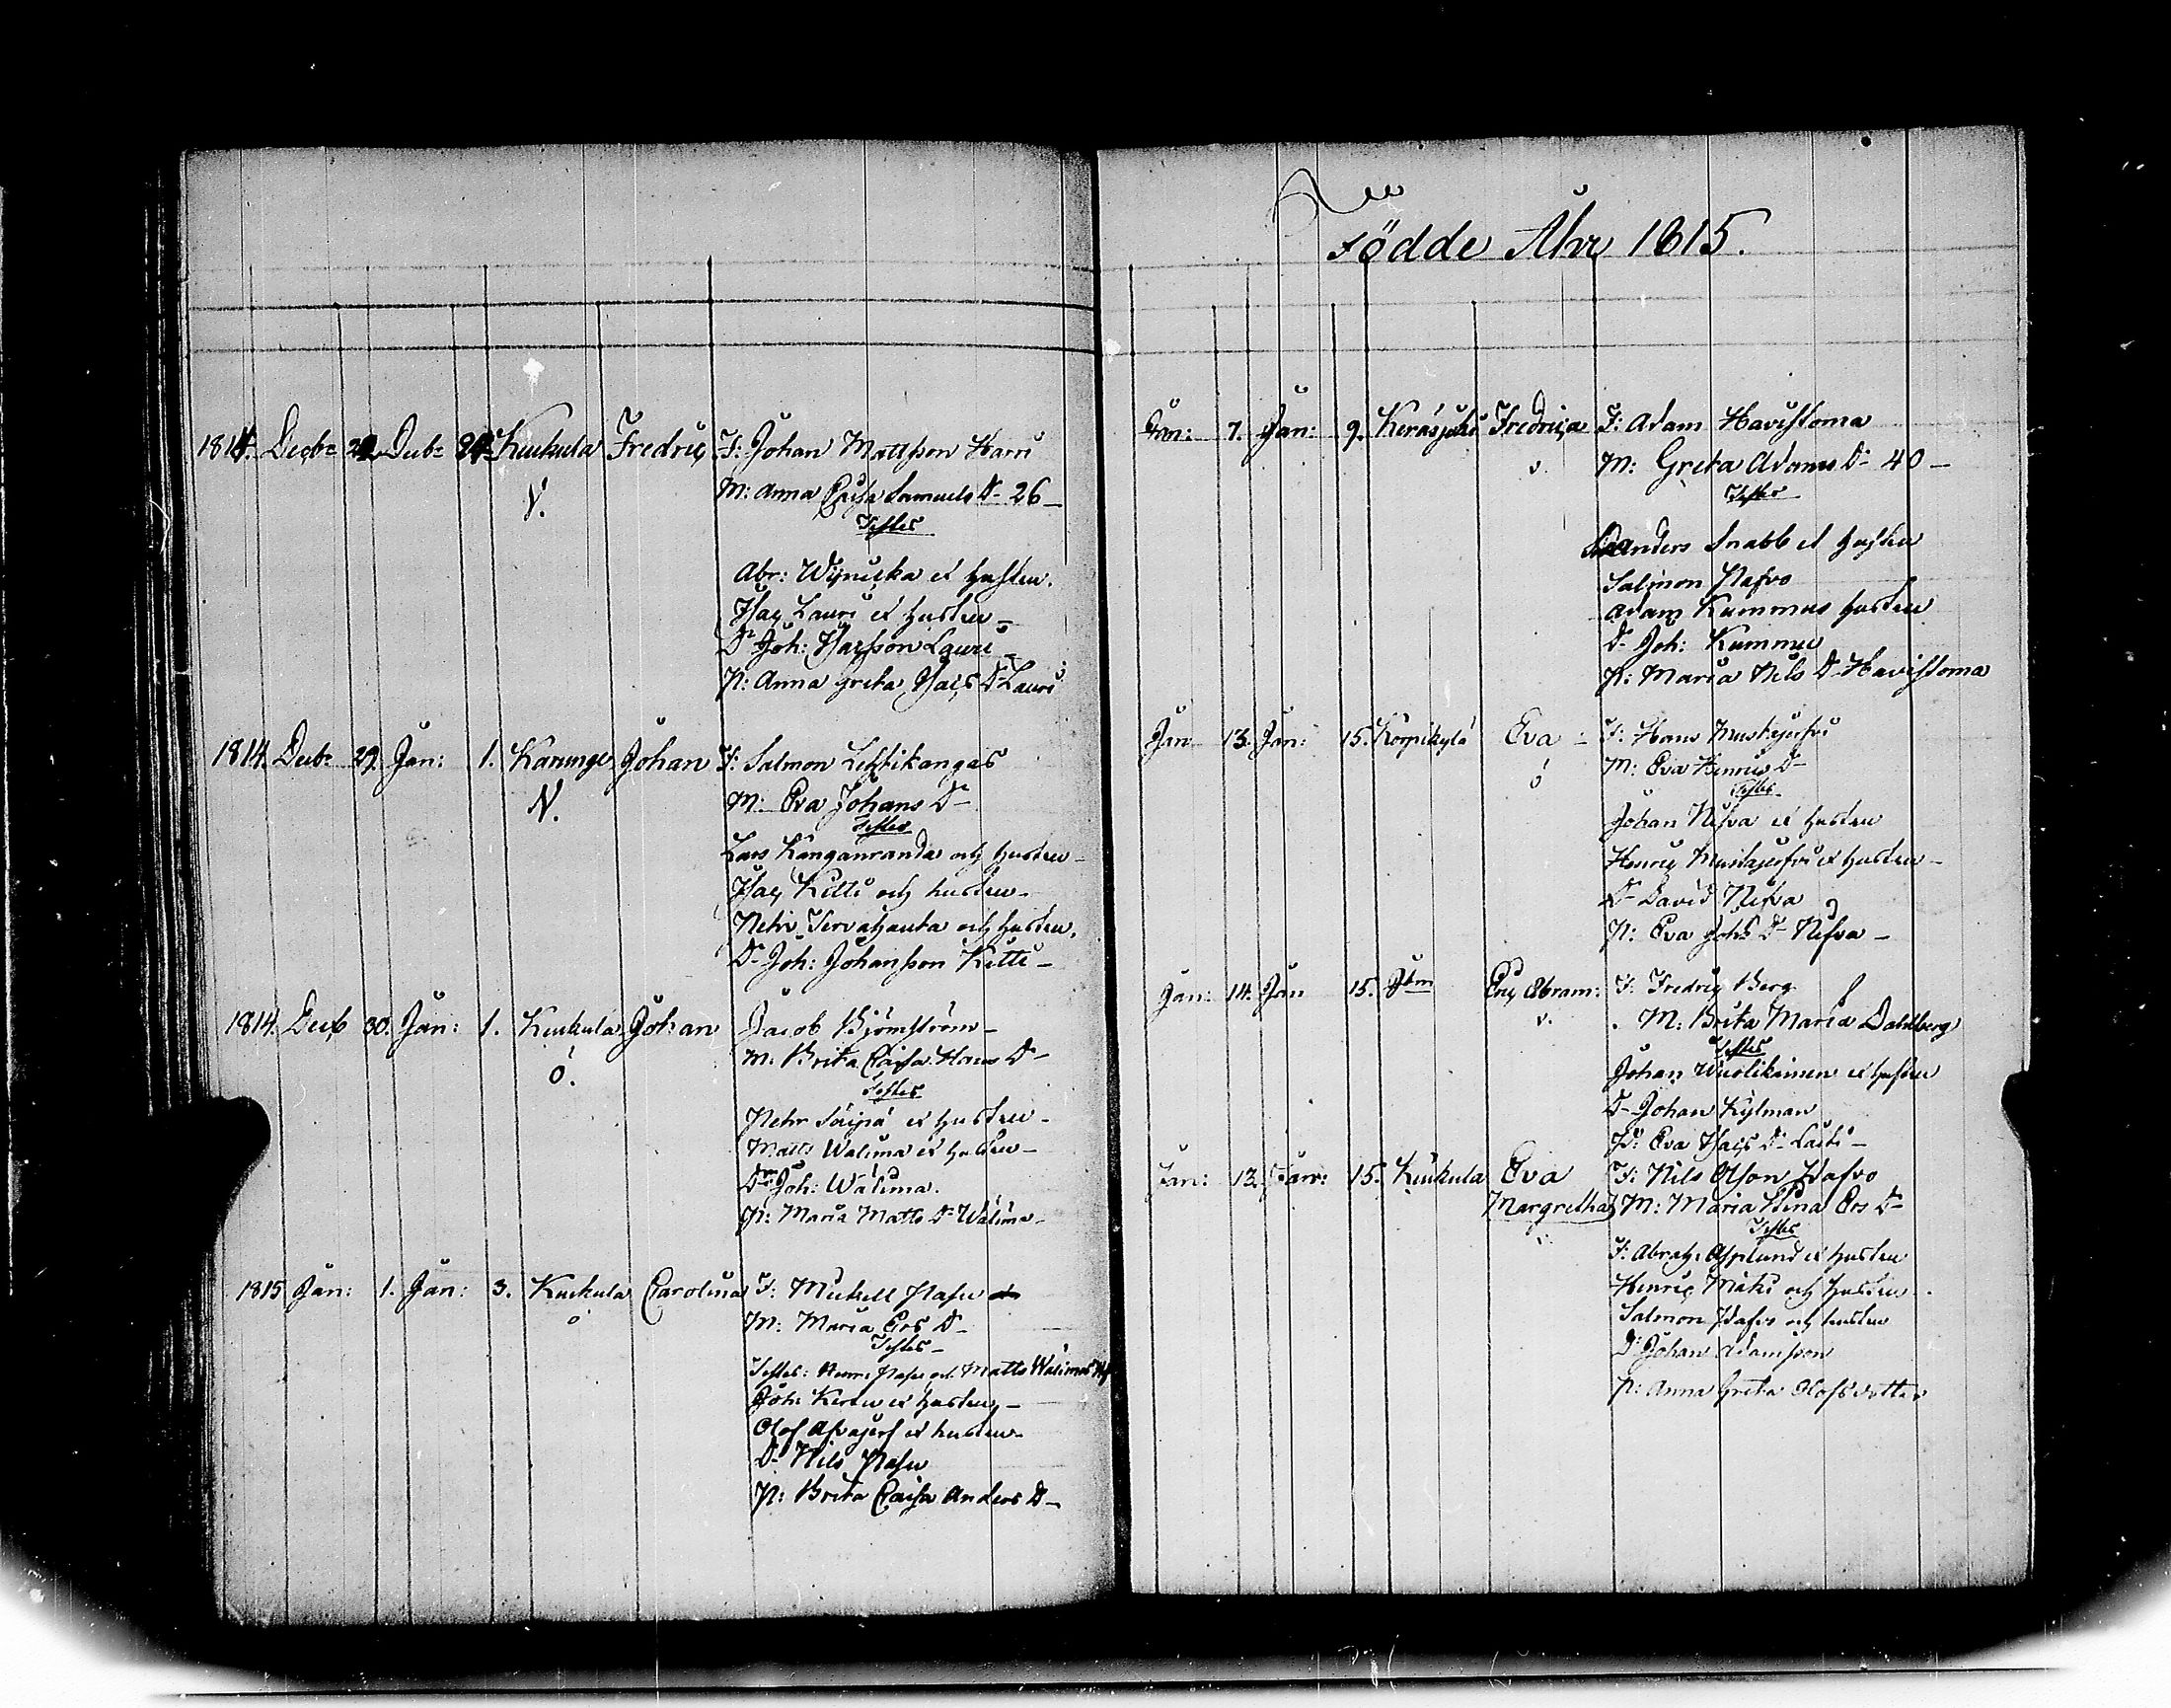 1814. Decbr 24. Decbr 24. Kuckula Fredric F: Johan Mattsson Harri
V. M: Anna Caisa Samuels Dr 26 –
Testes
Abr: Wynicka et hustru.
Isac Lauri et hustru –
Dr Joh: Isacsson Lauri –
P: Anna Greta Isacs Dr Lauri
1814. Decbr 29. Jan: 1. Karunge Johan F: Salmon Lehtikangas
N. M: Eva Johans Dr
Testes
Lars Kanganranda och hustru –
Isac Kitti och hustru –
Petri Tervahauta och hustru.
Dr Joh: Johansson Kitti –
1814. Decb 30. Jan: 1. Kuckula Johan Jacob Björnström –
ö. M: Brita Caisa Hans Dr –
Testes
Pehr et hustru –
Matts Walima et hustru –
Dr Joh: Walima.
P: Maria Matts Dr Walima –
1815 Jan: 1. Jan: 3. Kuckula Carolina F: Mickell
ö M: Maria Ers Dr –
Testes –
Testes: och Matts Walimas
Joh: et hustru –
Olof et hustru –
Dr Nils
P: Brita Caisa Anders Dr –
Födde År 1815.
Jan: 7. Jan: 9. Kerasjoki Fredrica F: Adam Havistoma
v. M: Greta Adams Dr 40 –
Testes
Anders Snabb et hustru
Salmon Pafvo
Adam Kummus hustru
Dr Joh: Kummu
P: Maria Nils Dr Havistoma
Jan 13. Jan: 15. Korpikylä Eva – F: Hans Mustajerfvi
ö M: Eva Henrics Dr –
Testes
Johan Nifva et hustru
Henric Mustajerfvi et hustru –
Dr David Nifva
P: Eva Joh: Dr Nifva –
Jan: 14. Jan 15. Ibm Eric Abram: F: Fredric Berg
v. M: Brita Maria Dahlberg
Testes
Johan Wuolikainen et hustru
Dr Johan Kylman
P: Eva Isacs Dr –
Jan: 12. Jan: 15. Kuckula Eva F: Nils Olson Pafvo
Margretha M: Maria Stina Ers Dr –
v. Testes
F: Abrah: Asplund et hustru
Henric Mäki och hustru –
Salmon Pafvo och hustru
Dr Johan Adamsson
P: Anna Greta Olofsdotter